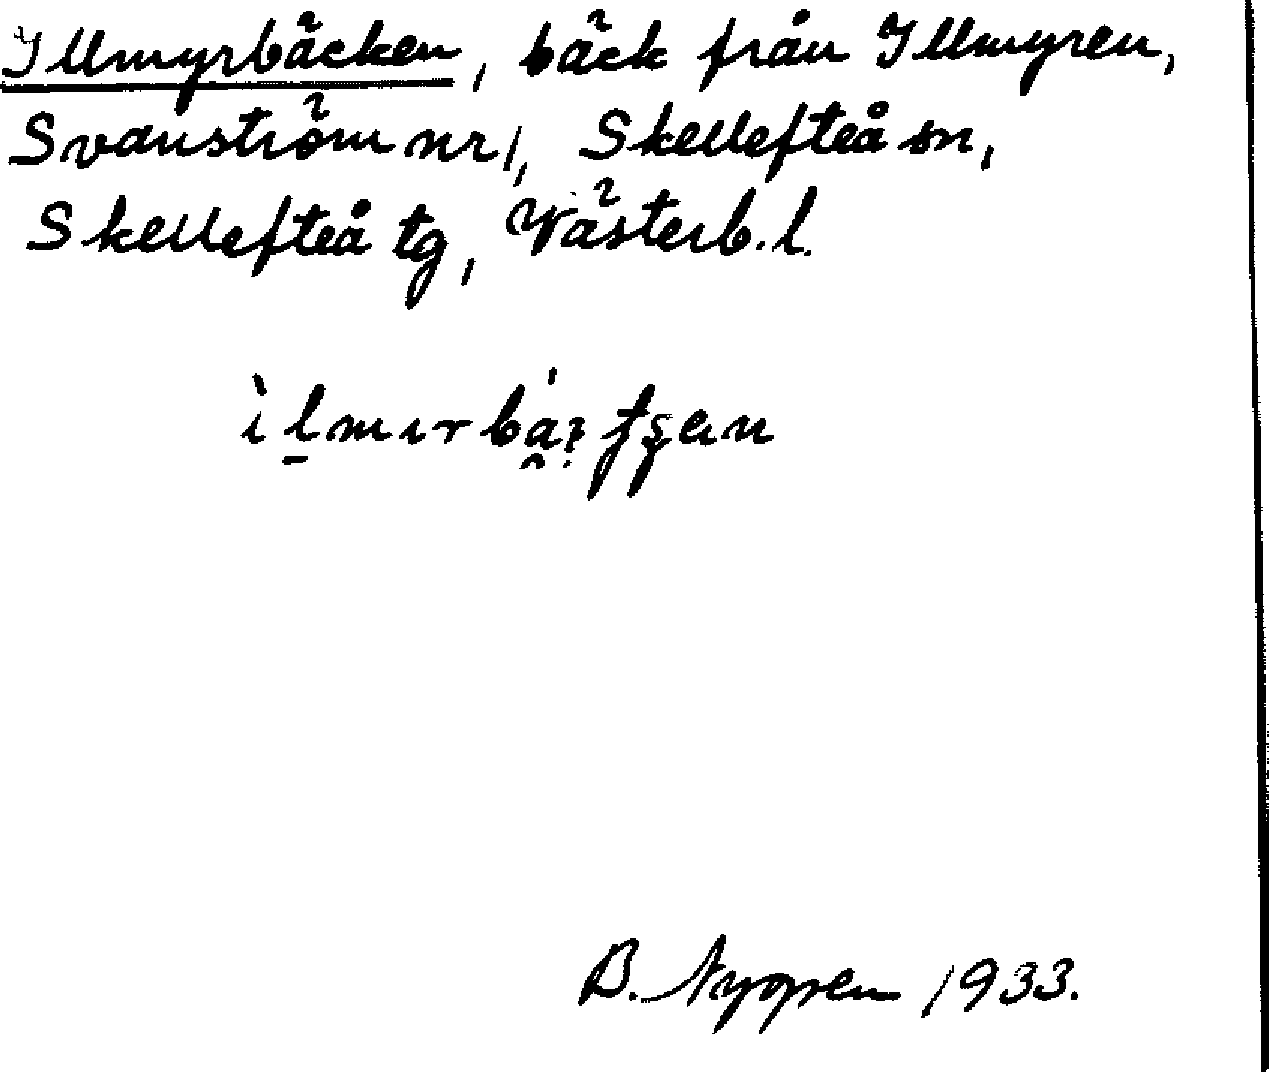 Illmyrbäcken, bäck från Illmyren,
Svanström nr 1, Skellefteå sn,
Skellefteå tg, Västerb. l.
B. Nygren 1933.